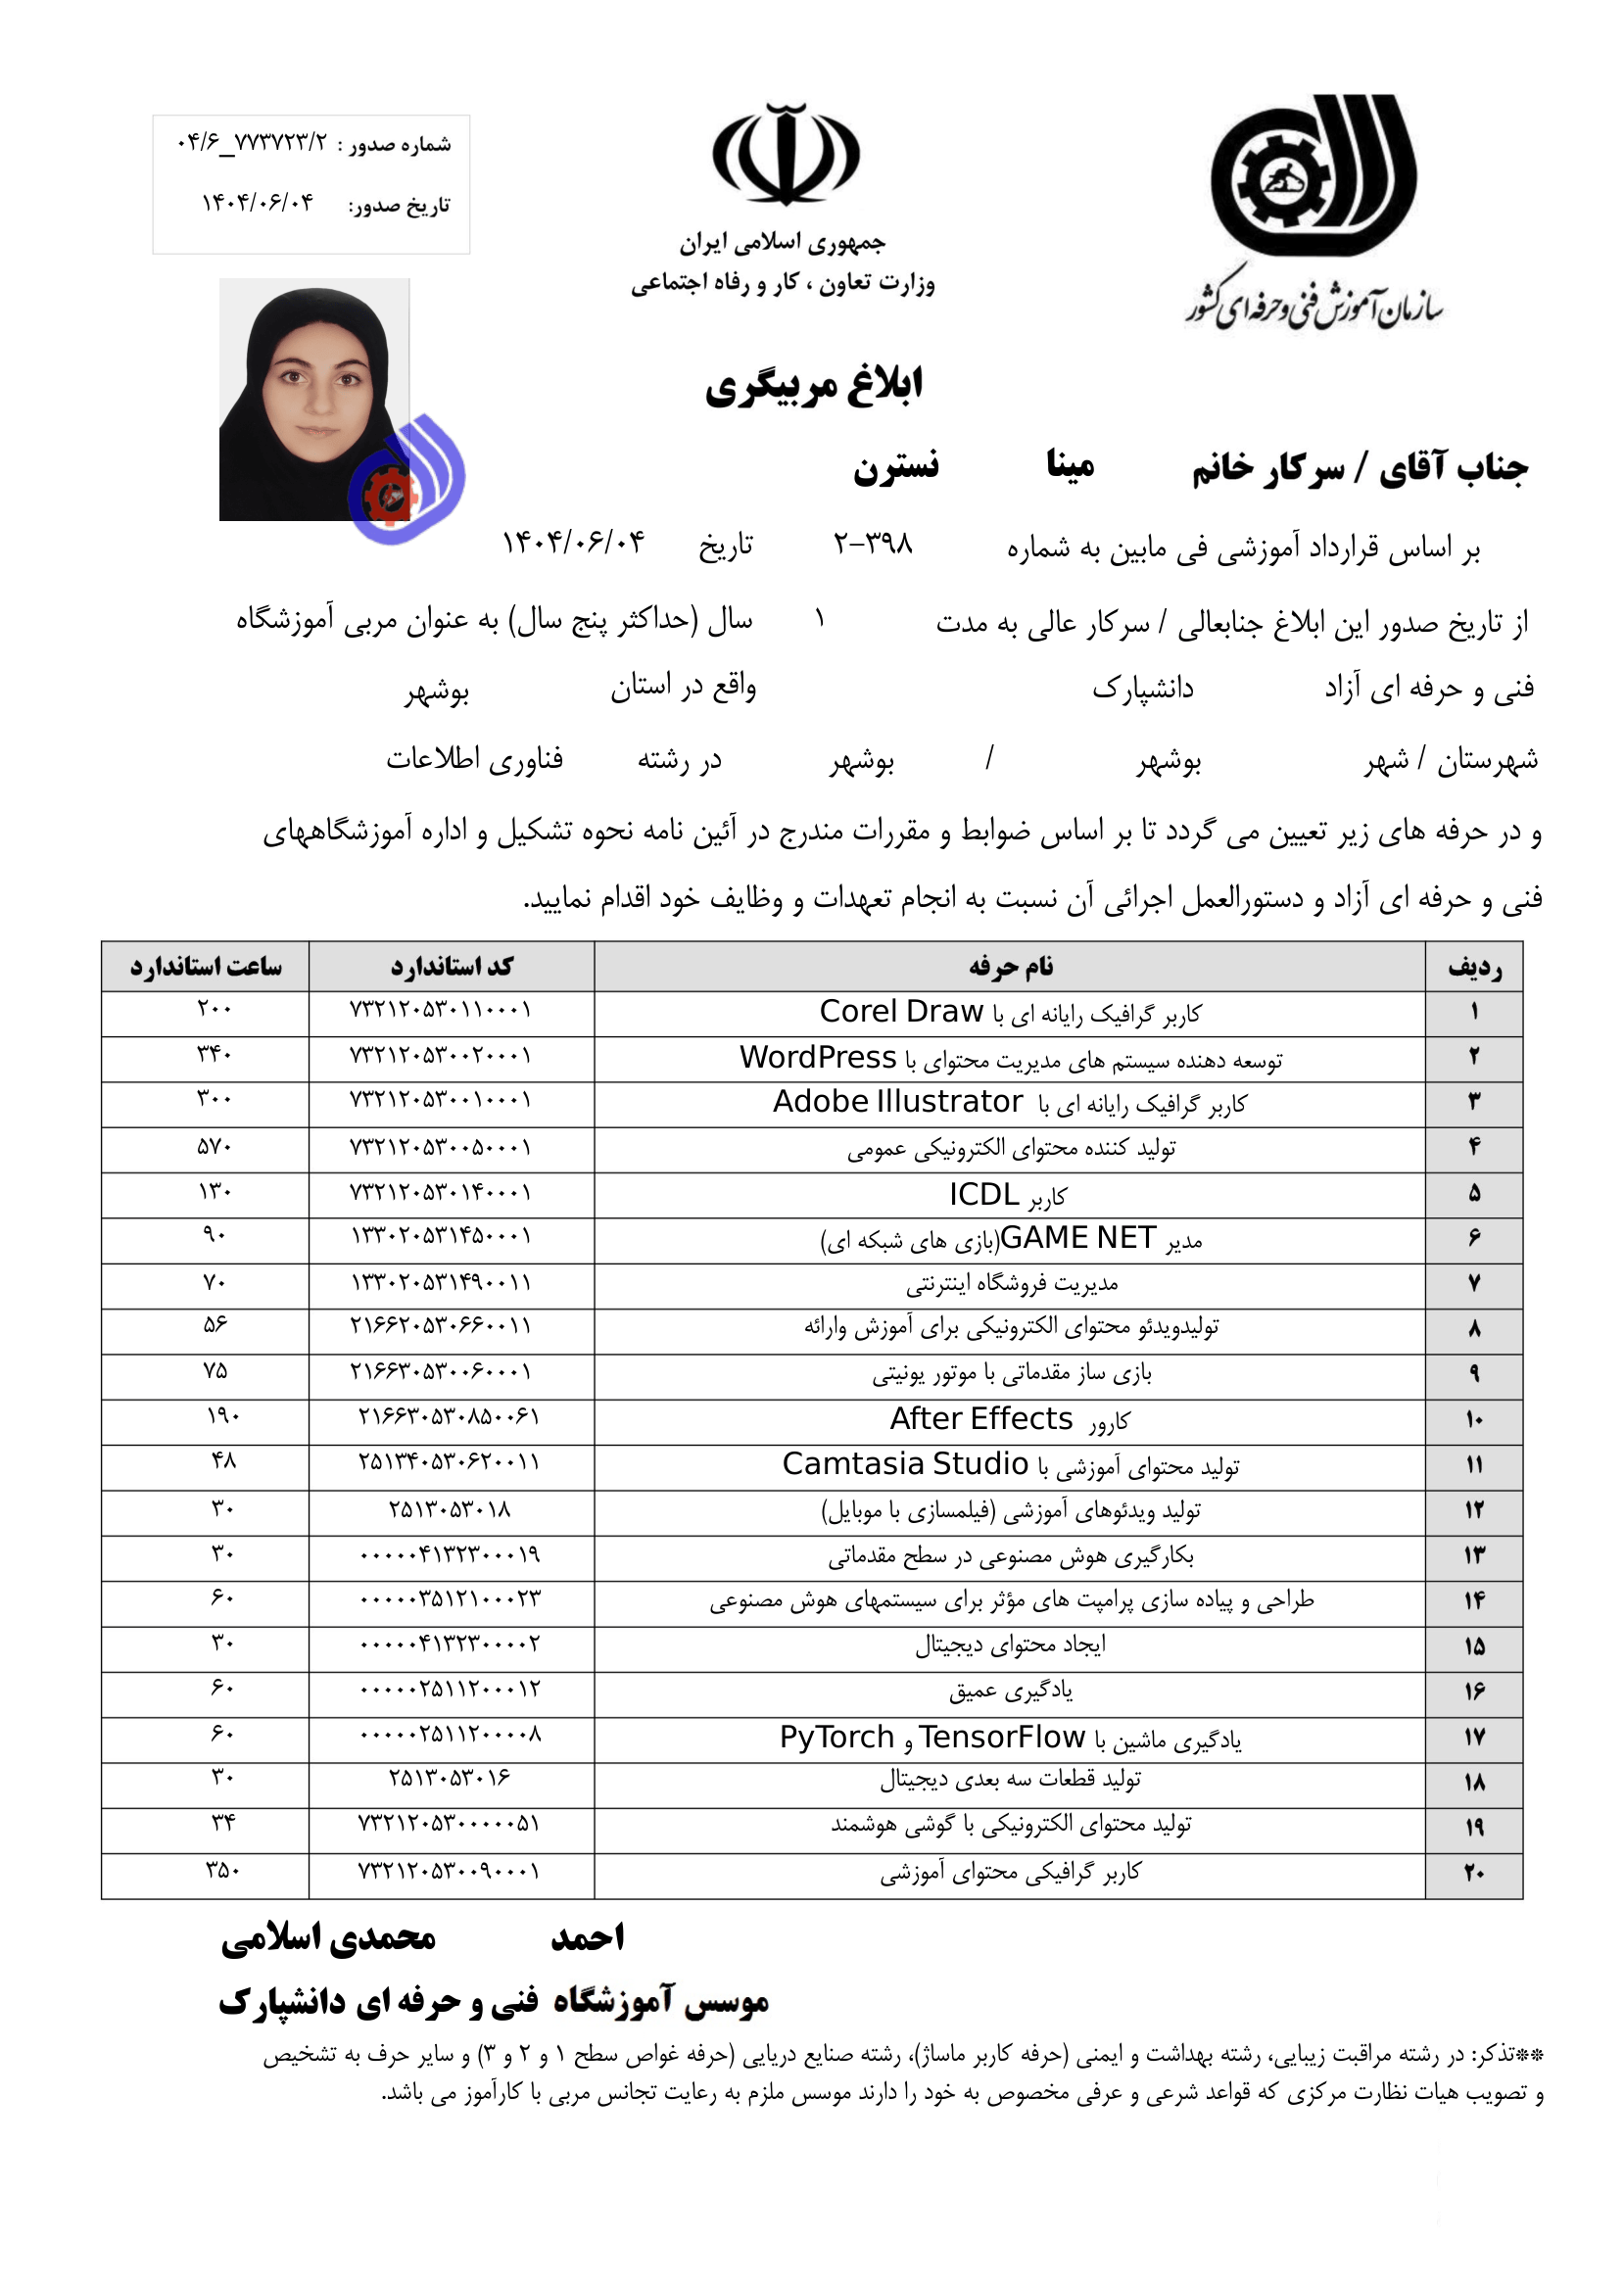 سازمان آموزش فنی و حرفه ای کشور
جمهوری اسلامی ایران
وزارت تعاون ، کار و رفاه اجتماعی
شماره صدور : ۰۴/۶_۷۷۳۷۲۳/۲
تاریخ صدور: ۱۴۰۴/۰۶/۰۴
ابلاغ مربیگری
جناب آقای / سرکار خانم مینا نسترن
بر اساس قرارداد آموزشی فی مابین به شماره ۲-۳۹۸ تاریخ ۱۴۰۴/۰۶/۰۴
از تاریخ صدور این ابلاغ جنابعالی / سرکار عالی به مدت ۱ سال (حداکثر پنج سال) به عنوان مربی آموزشگاه
فنی و حرفه ای آزاد دانشپارک واقع در استان بوشهر
شهرستان / شهر بوشهر / بوشهر در رشته فناوری اطلاعات
و در حرفه های زیر تعیین می گردد تا بر اساس ضوابط و مقررات مندرج در آئین نامه نحوه تشکیل و اداره آموزشگاههای
فنی و حرفه ای آزاد و دستورالعمل اجرائی آن نسبت به انجام تعهدات و وظایف خود اقدام نمایید.
ردیف نام حرفه کد استاندارد ساعت استاندارد
۱ کاربر گرافیک رایانه ای با Corel Draw ۷۳۲۱۲۰۵۳۰۱۱۰۰۰۱ ۲۰۰
۲ توسعه دهنده سیستم های مدیریت محتوای با WordPress ۷۳۲۱۲۰۵۳۰۰۲۰۰۰۱ ۳۴۰
۳ کاربر گرافیک رایانه ای با Adobe Illustrator ۷۳۲۱۲۰۵۳۰۰۱۰۰۰۱ ۳۰۰
۴ تولید کننده محتوای الکترونیکی عمومی ۷۳۲۱۲۰۵۳۰۰۵۰۰۰۱ ۵۷۰
۵ کاربر ICDL ۷۳۲۱۲۰۵۳۰۱۴۰۰۰۱ ۱۳۰
۶ مدیر GAME NET(بازی های شبکه ای) ۱۳۳۰۲۰۵۳۱۴۵۰۰۰۱ ۹۰
۷ مدیریت فروشگاه اینترنتی ۱۳۳۰۲۰۵۳۱۴۹۰۰۱۱ ۷۰
۸ تولیدویدئو محتوای الکترونیکی برای آموزش وارائه ۲۱۶۶۲۰۵۳۰۶۶۰۰۱۱ ۵۶
۹ بازی ساز مقدماتی با موتور یونیتی ۲۱۶۶۳۰۵۳۰۰۶۰۰۰۱ ۷۵
۱۰ کارور After Effects ۲۱۶۶۳۰۵۳۰۸۵۰۰۶۱ ۱۹۰
۱۱ تولید محتوای آموزشی با Camtasia Studio ۲۵۱۳۴۰۵۳۰۶۲۰۰۱۱ ۴۸
۱۲ تولید ویدئوهای آموزشی (فیلمسازی با موبایل) ۲۵۱۳۰۵۳۰۱۸ ۳۰
۱۳ بکارگیری هوش مصنوعی در سطح مقدماتی ۰۰۰۰۰۴۱۳۲۳۰۰۰۱۹ ۳۰
۱۴ طراحی و پیاده سازی پرامپت های مؤثر برای سیستمهای هوش مصنوعی ۰۰۰۰۰۳۵۱۲۱۰۰۰۲۳ ۶۰
۱۵ ایجاد محتوای دیجیتال ۰۰۰۰۰۴۱۳۲۳۰۰۰۰۲ ۳۰
۱۶ یادگیری عمیق ۰۰۰۰۰۲۵۱۱۲۰۰۰۱۲ ۶۰
۱۷ یادگیری ماشین با TensorFlow و PyTorch ۰۰۰۰۰۲۵۱۱۲۰۰۰۰۸ ۶۰
۱۸ تولید قطعات سه بعدی دیجیتال ۲۵۱۳۰۵۳۰۱۶ ۳۰
۱۹ تولید محتوای الکترونیکی با گوشی هوشمند ۷۳۲۱۲۰۵۳۰۰۰۰۰۵۱ ۳۴
۲۰ کاربر گرافیکی محتوای آموزشی ۷۳۲۱۲۰۵۳۰۰۹۰۰۰۱ ۳۵۰
احمد محمدی اسلامی
موسس آموزشگاه فنی و حرفه ای دانشپارک
**تذکر: در رشته مراقبت زیبایی، رشته بهداشت و ایمنی (حرفه کاربر ماساژ)، رشته صنایع دریایی (حرفه غواص سطح ۱ و ۲ و ۳) و سایر حرف به تشخیص
و تصویب هیات نظارت مرکزی که قواعد شرعی و عرفی مخصوص به خود را دارند موسس ملزم به رعایت تجانس مربی با کارآموز می باشد.